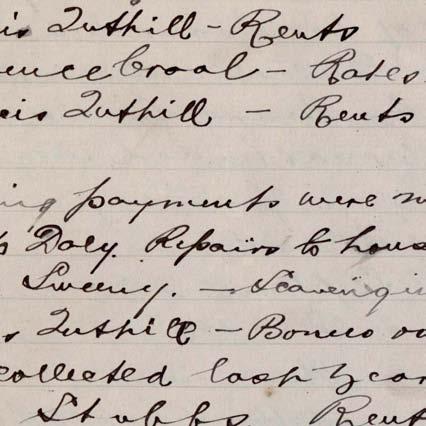 is Tuthill - Rents
ence Croal - Rates
cis Tuthill - Rents
ing payments were m
s Daly. Repairs to hous
Sweeny. - Scavengin
s Tuthill - Bonus on
collected last year
Stubbs Rent